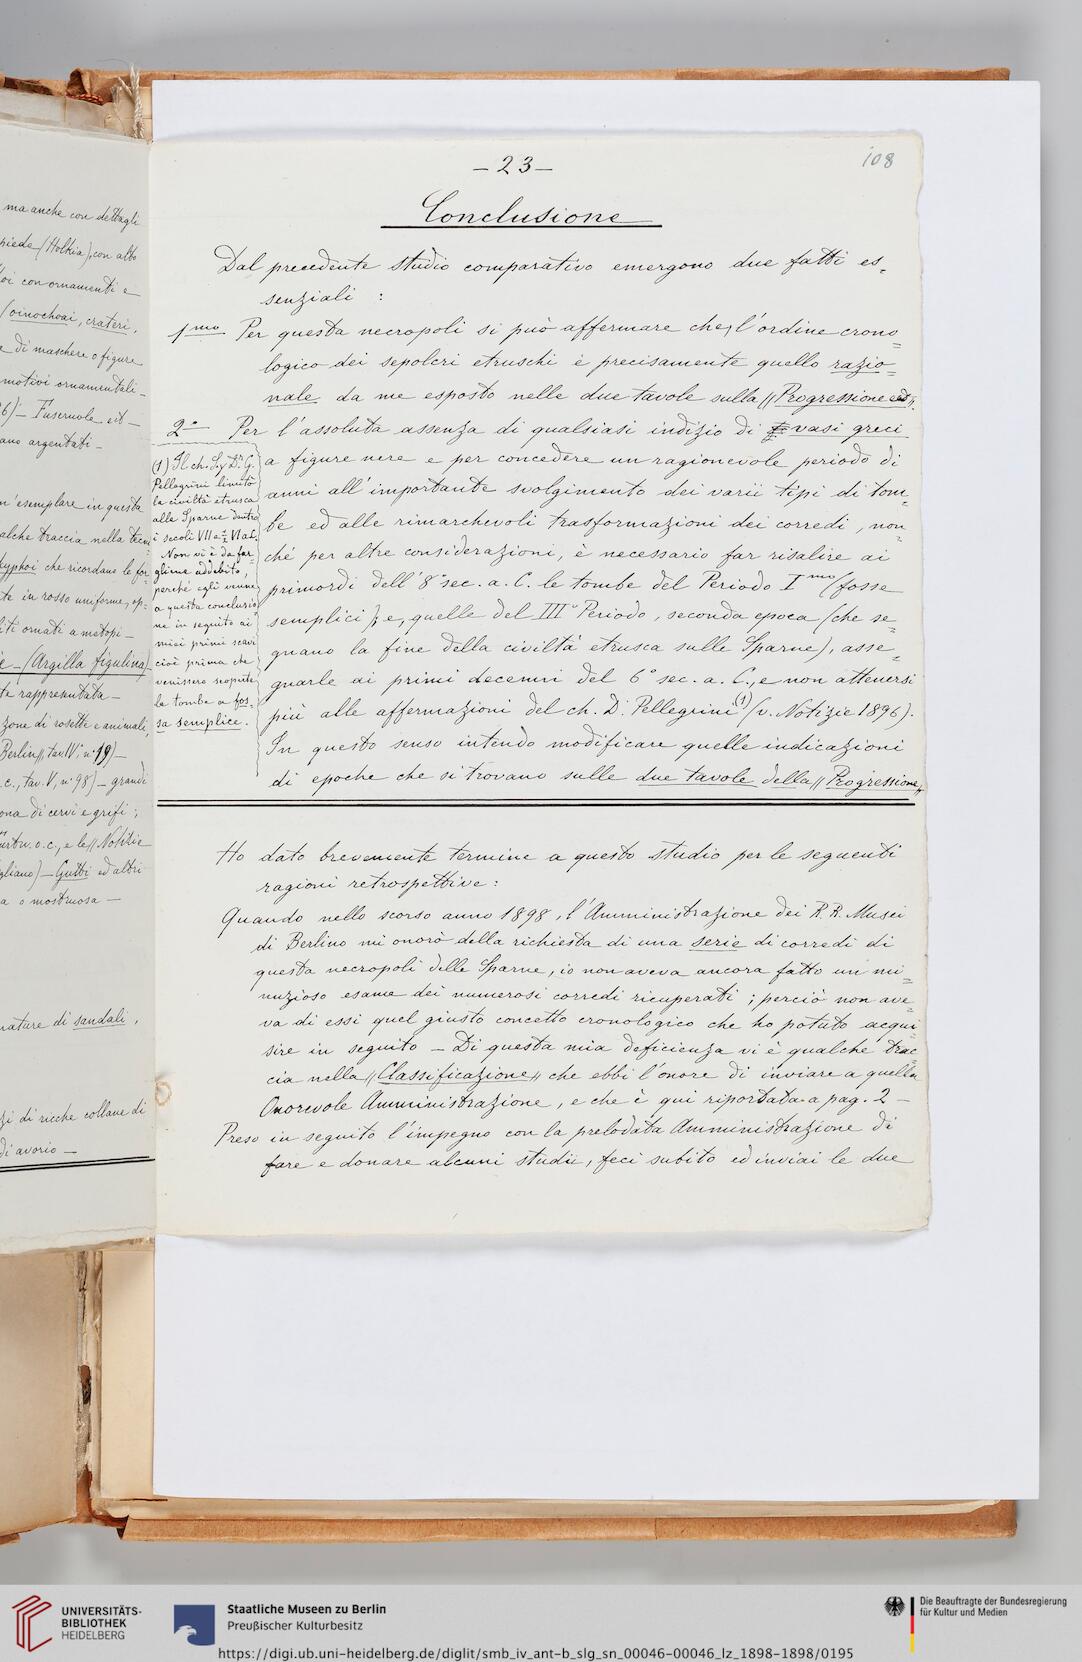 ma anche con dettagli
piede (Holkia), con alto
oi con ornamenti e
(oinochoai, crateri,
e di maschere o figure
motivi ornamentali_
6)_ Fuseruole ect_
ano argentati_
n'esemplare in questa
alche traccia nella tecni
kyphoi che ricordano le for
te in rosso uniforme, op=
iti ornati a metopi_
e_(Argilla figulina)_
te rappresentata_
zone di rosette e animali,
Berlin, tav. IV, n. 19)_
c., tav. V, n. 98)_ grandi
ona di cervi e grifi ;
o. c., e le "Notizie
gliano)_ Gutti ed altri
a o mostruosa_
nature di sandali,
zi di ricche collane di
di avorio_
108
_23_
Conclusione
Dal precedente studio comparativo emergono due fatti es=
senziali :
1mo Per questa necropoli si può affermare che, l'ordine crono=
logico dei sepolcri etruschi è precisamente quello razio=
nale da me esposto nelle due tavole sulla "Progressione ect".
2° Per l'assoluta assenza di qualsiasi indizio di vasi greci
a figure nere e per concedere un ragionevole periodo di
anni all'importante svolgimento dei varii tipi di tom=
be ed alle rimarchevoli trasformazioni dei corredi, non=
ché per altre considerazioni, è necessario far risalire ai
primordi dell'8° sec. a. C. le tombe del Periodo Imo (fosse
semplici); e, quelle del III° Periodo, seconda epoca (che se=
gnano la fine della civiltà etrusca sulle Sparne), asse=
gnarle ai primi decenni del 6° sec. a. C., e non attenersi
più alle affermazioni del ch. Dr. Pellegrini (1) (v. Notizie 1896).
In questo senso intendo modificare quelle indicazioni
di epoche che si trovano sulle due tavole della "Progressione"
(1) Il ch. Sig Dr. G.
Pellegrini limitò
la civiltà etrusca
alle Sparne dentro
i secoli VII e VI a.C.
Non vi è da far=
gliene addebito,
perché egli venne
a questa conclusio=
ne in seguito ai
miei primi scavi
cioè prima che
venissero scoperte
le tombe a fos=
sa semplice.
Ho dato brevemente termine a questo studio per le seguenti
ragioni retrospettive:
Quando nello scorso anno 1898, l'Amministrazione dei R. R. Musei
di Berlino mi onorò della richiesta di una serie di corredi di
questa necropoli delle Sparne, io non aveva ancora fatto un mi=
nuzioso esame dei numerosi corredi ricuperati ; perciò non ave=
va di essi quel giusto concetto cronologico che ho potuto acqui=
sire in seguito _ Di questa mia deficienza vi è qualche trac=
cia nella "Classificazione" che ebbi l'onore di inviare a quella
Onorevole Amministrazione, e che è qui riportata a pag. 2_
Preso in seguito l'impegno con la prelodata Amministrazione di
fare e donare alcuni studii, feci subito ed inviai le due
UNIVERSITÄTS-
BIBLIOTHEK
HEIDELBERG
Staatliche Museen zu Berlin
Preußischer Kulturbesitz
Die Beauftragte der Bundesregierung
für Kultur und Medien
https://digi.ub.uni-heidelberg.de/diglit/smb_iv_ant-b_slg_sn_00046-00046_lz_1898-1898/0195